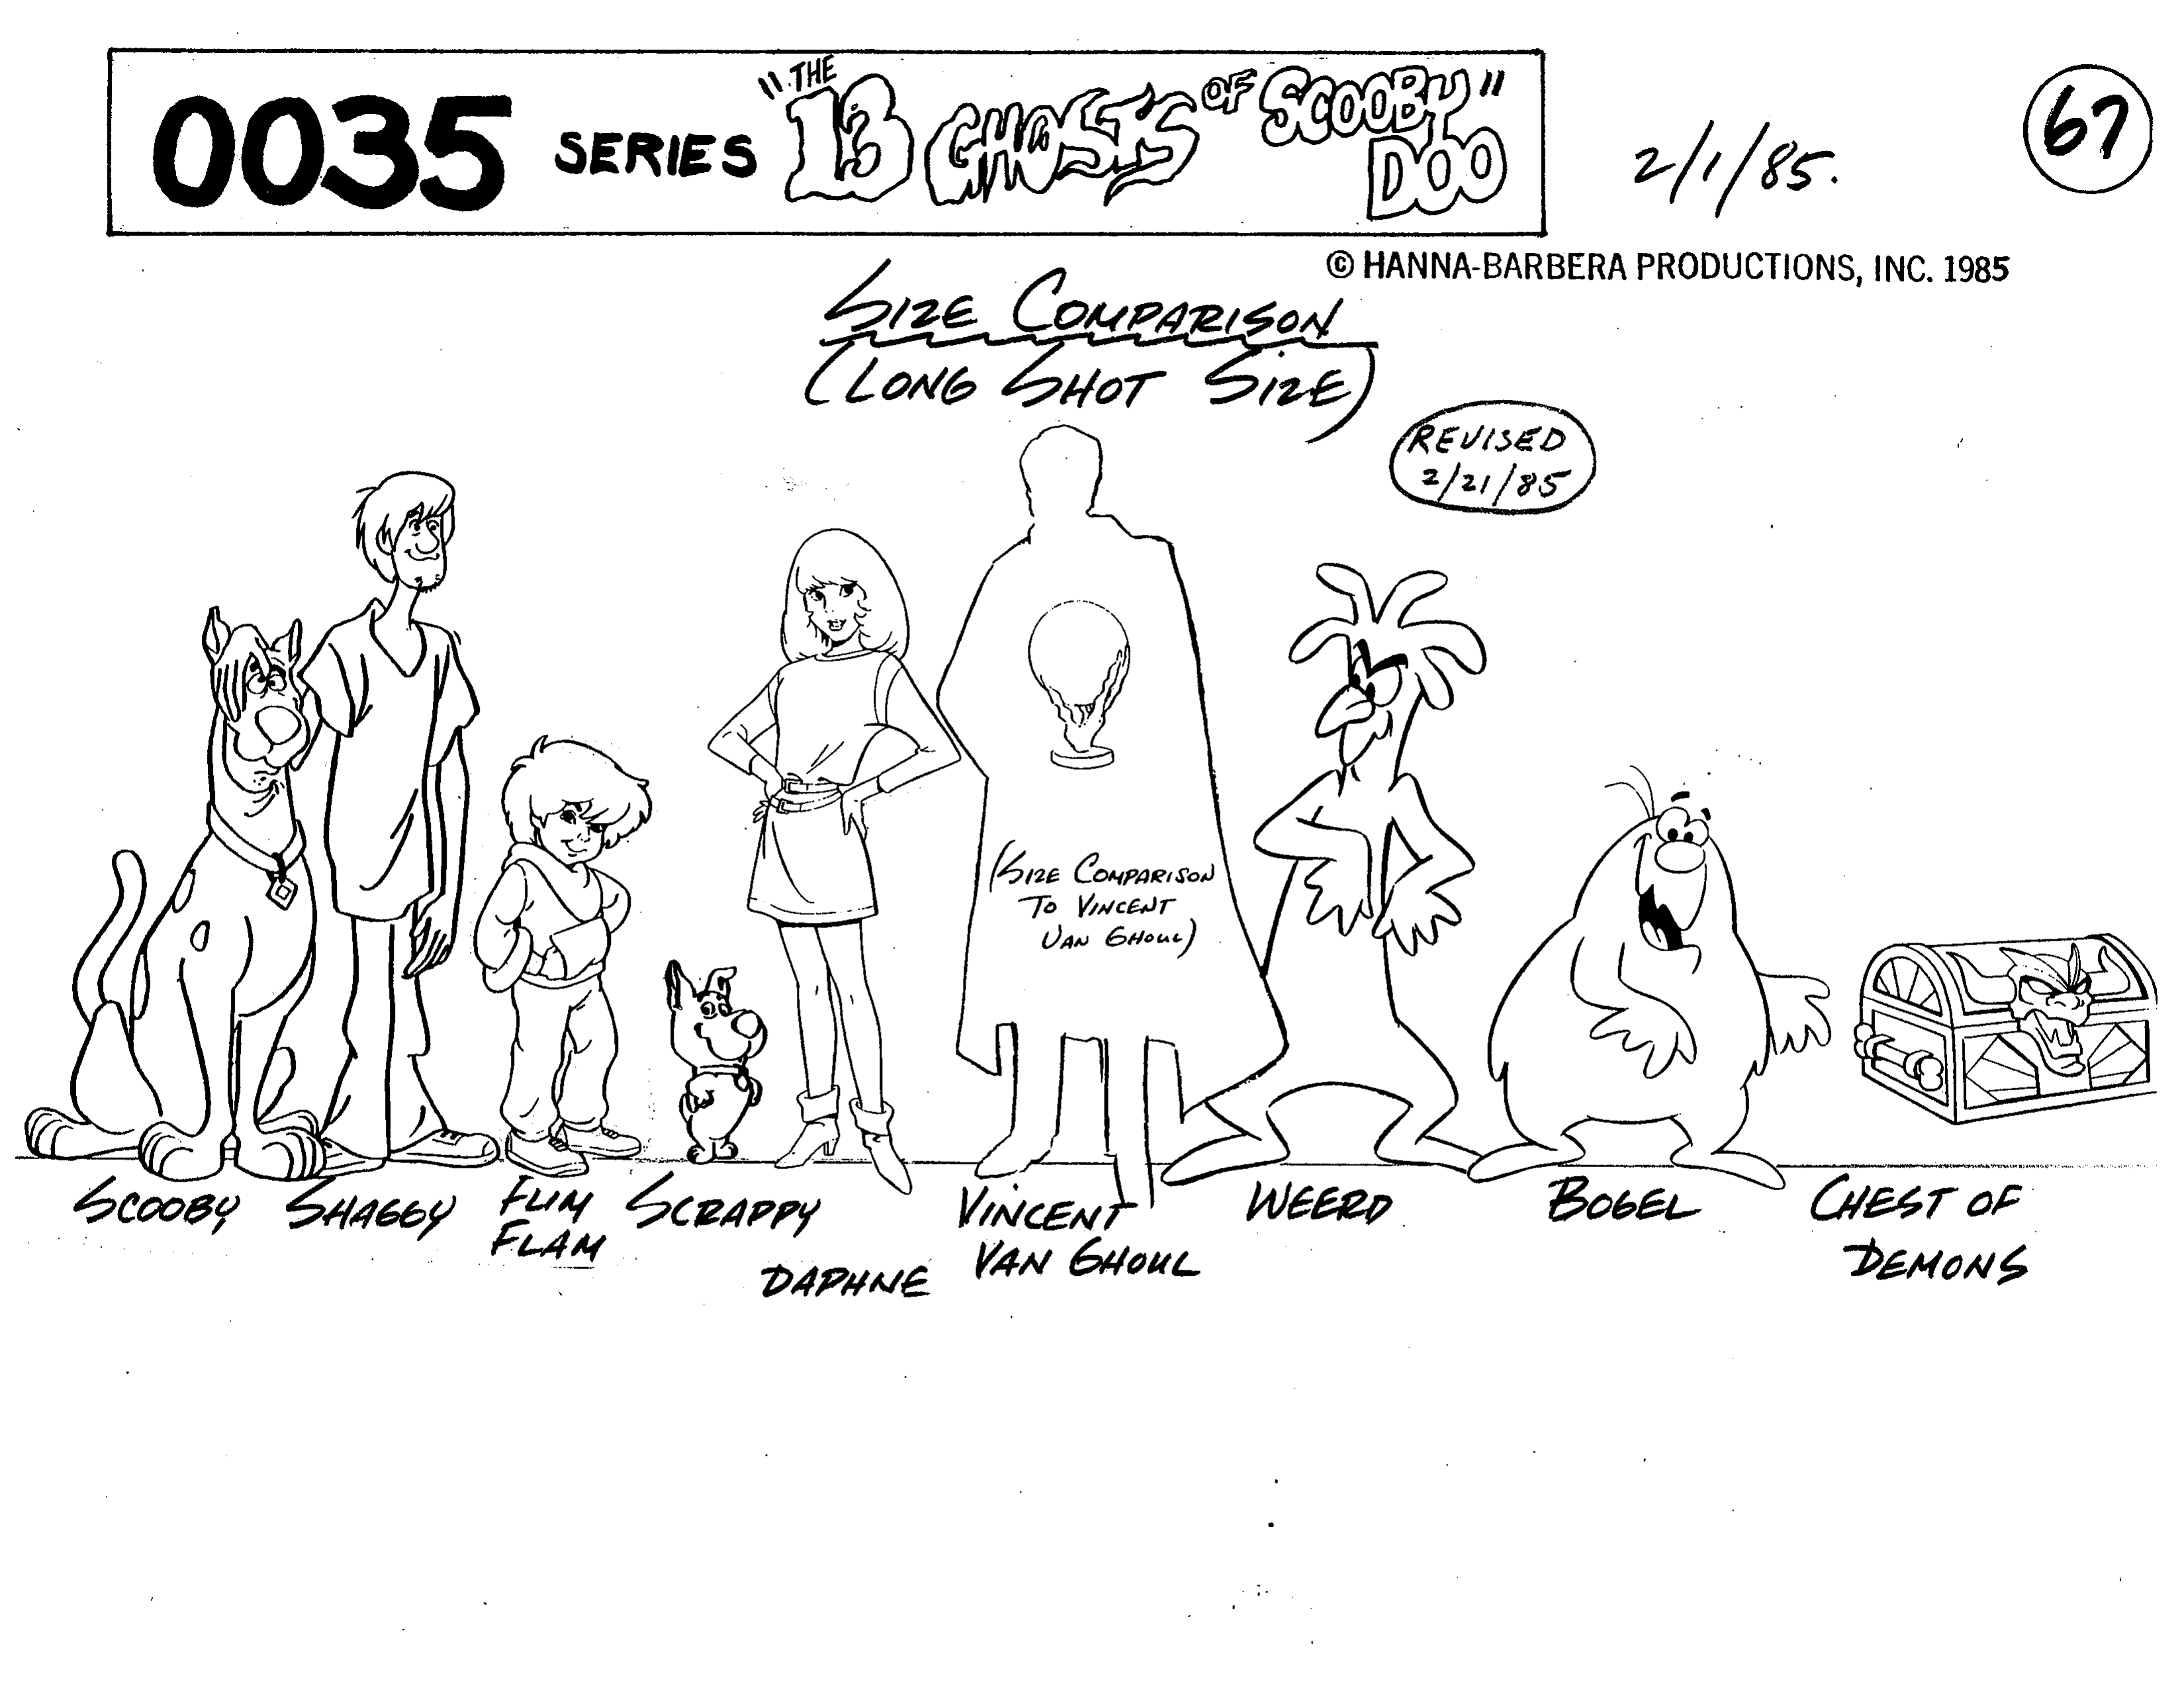 0035 SERIES "THE 13 GHOSTS OF SCOOBY DOO"
2/1/85.
67
© HANNA-BARBERA PRODUCTIONS, INC. 1985
SIZE COMPARISON
(LONG SHOT SIZE)
REVISED
2/21/85
(SIZE COMPARISON
TO VINCENT
VAN GHOUL)
SCOOBY
SHAGGY
FLIM
FLAM
SCRAPPY
DAPHNE
VINCENT
VAN GHOUL
WEERD
BOGEL
CHEST OF
DEMONS